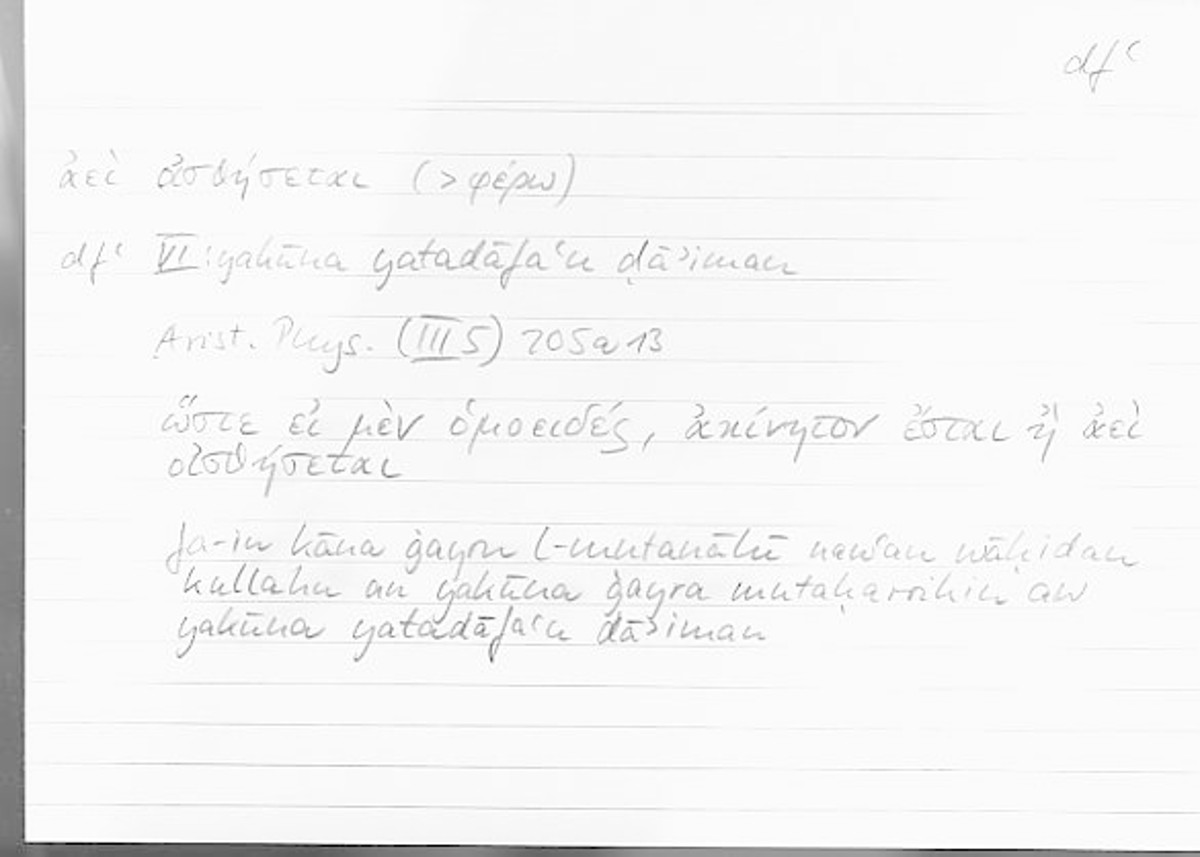 dfʿ
ἀεὶ οἰσθήσεται (> φέρω)
dfʿ VI: yakūna yatadāfaʿu dāʾiman
Arist. Phys. (III 5) 205a13
ὥστε εἰ μὲν ὁμοειδές, ἀκίνητον ἔσται ἢ ἀεὶ
οἰσθήσεται
fa-in kāna ġayru l-mutanāhī nawʿan wāḥidan
kullahu an yakūna ġayra mutaḥarrikin aw
yakūna yatadāfaʿu dāʾiman